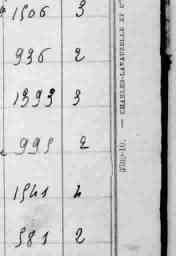 1506 3
936 2
1393 3
995 2
1541 4
581 2
— CHARLES-LAVAUZELLE ET Cie